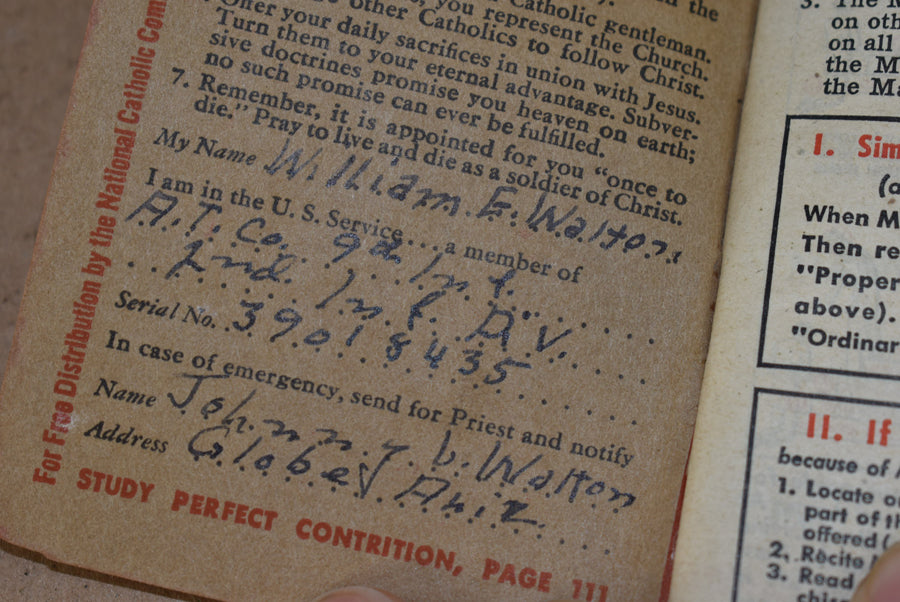 Catholic gentleman.
you represent the Church.
other Catholics to follow Christ.
Offer your daily sacrifices in union with Jesus.
Turn them to your eternal advantage. Subver-
sive doctrines promise you heaven on earth;
no such promise can ever be fulfilled.
7. Remember, it is appointed for you "once to
die." Pray to live and die as a soldier of Christ.
My Name William E. Walton
I am in the U. S. Service....a member of
A.T. Co. 9th Inf.
2nd. Inf. Div.
Serial No. 39018435
In case of emergency, send for Priest and notify
Name Johnny b. Walton
Address Globe, Ariz.
STUDY PERFECT CONTRITION, PAGE 111
For Free Distribution by the National Catholic Com
3. The
on
on all
the
the
I. 
When
Then
above).
II. If
because of
1. Locate
part of
offered (
2. Recite
3. Read